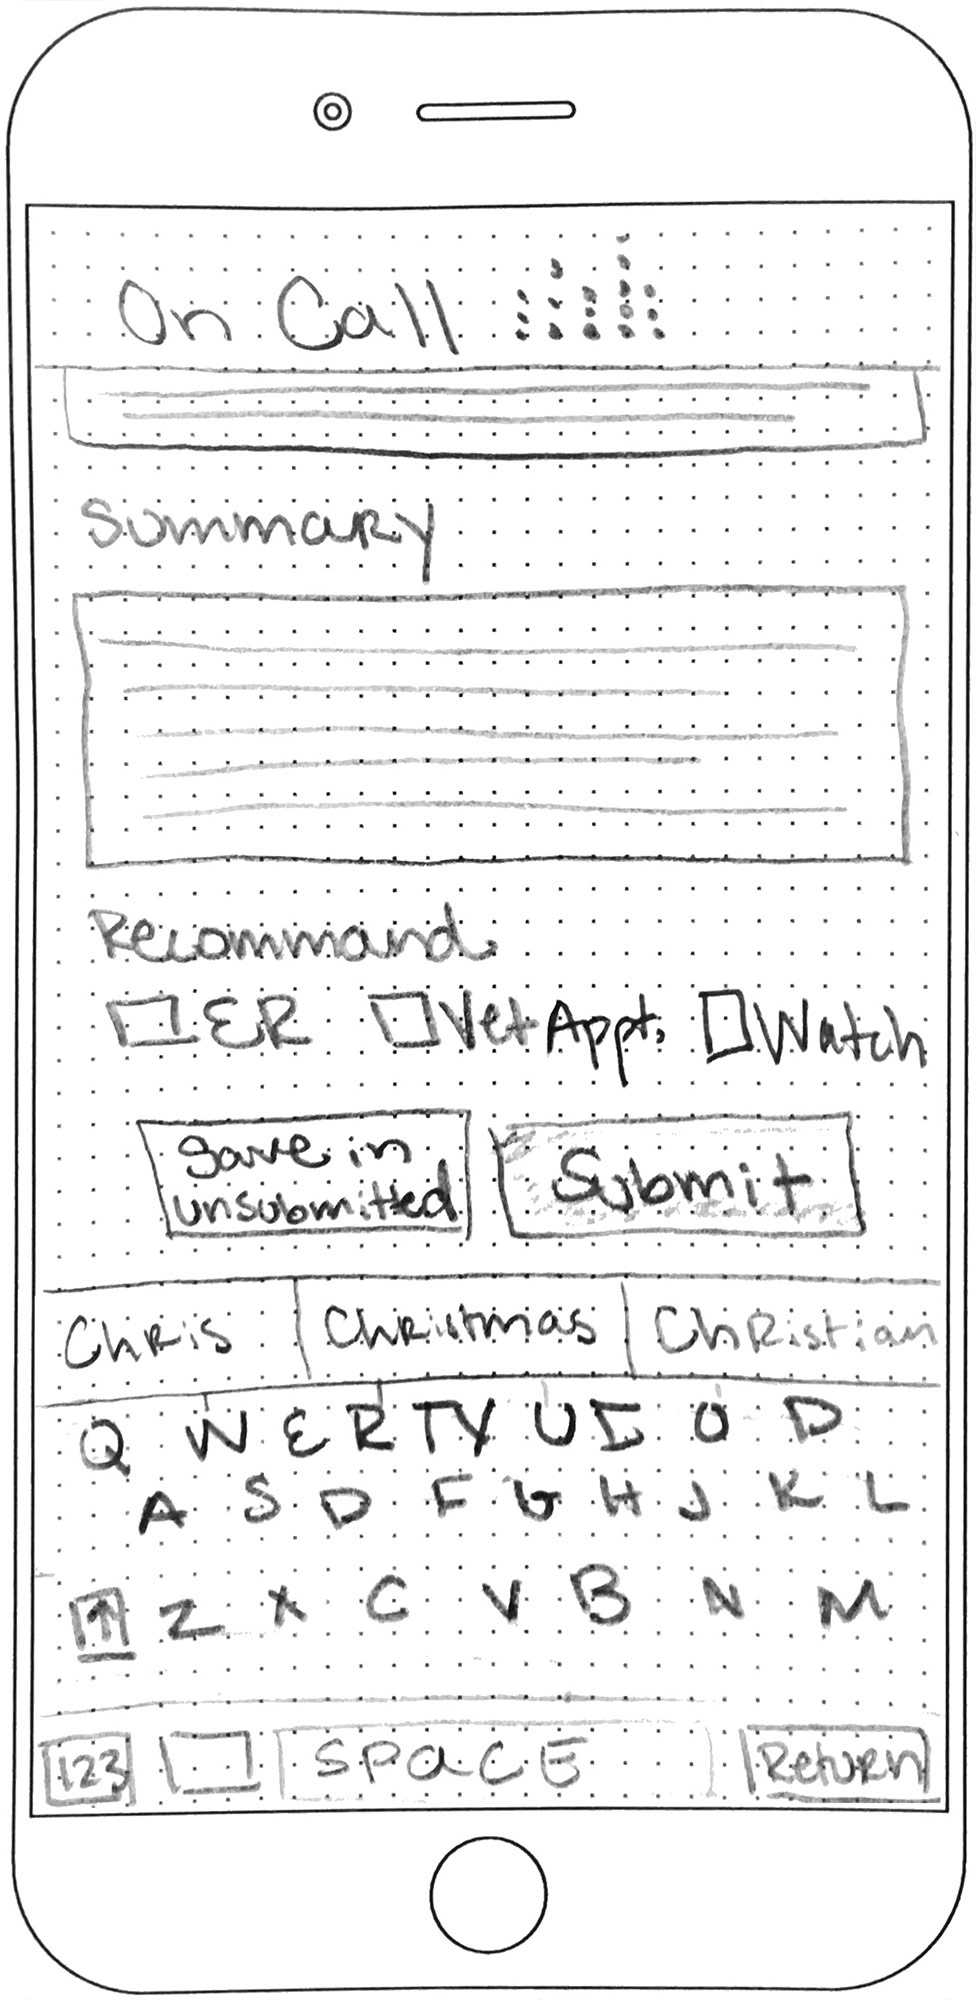 On Call
Summary
Recommand
ER Vet Appt. Watch
Save in
unsubmitted
Submit
Chris Christmas Christian
Q W E R T Y U I O D
A S D F G H J K L
Z X C V B N M
123 SPACE Return